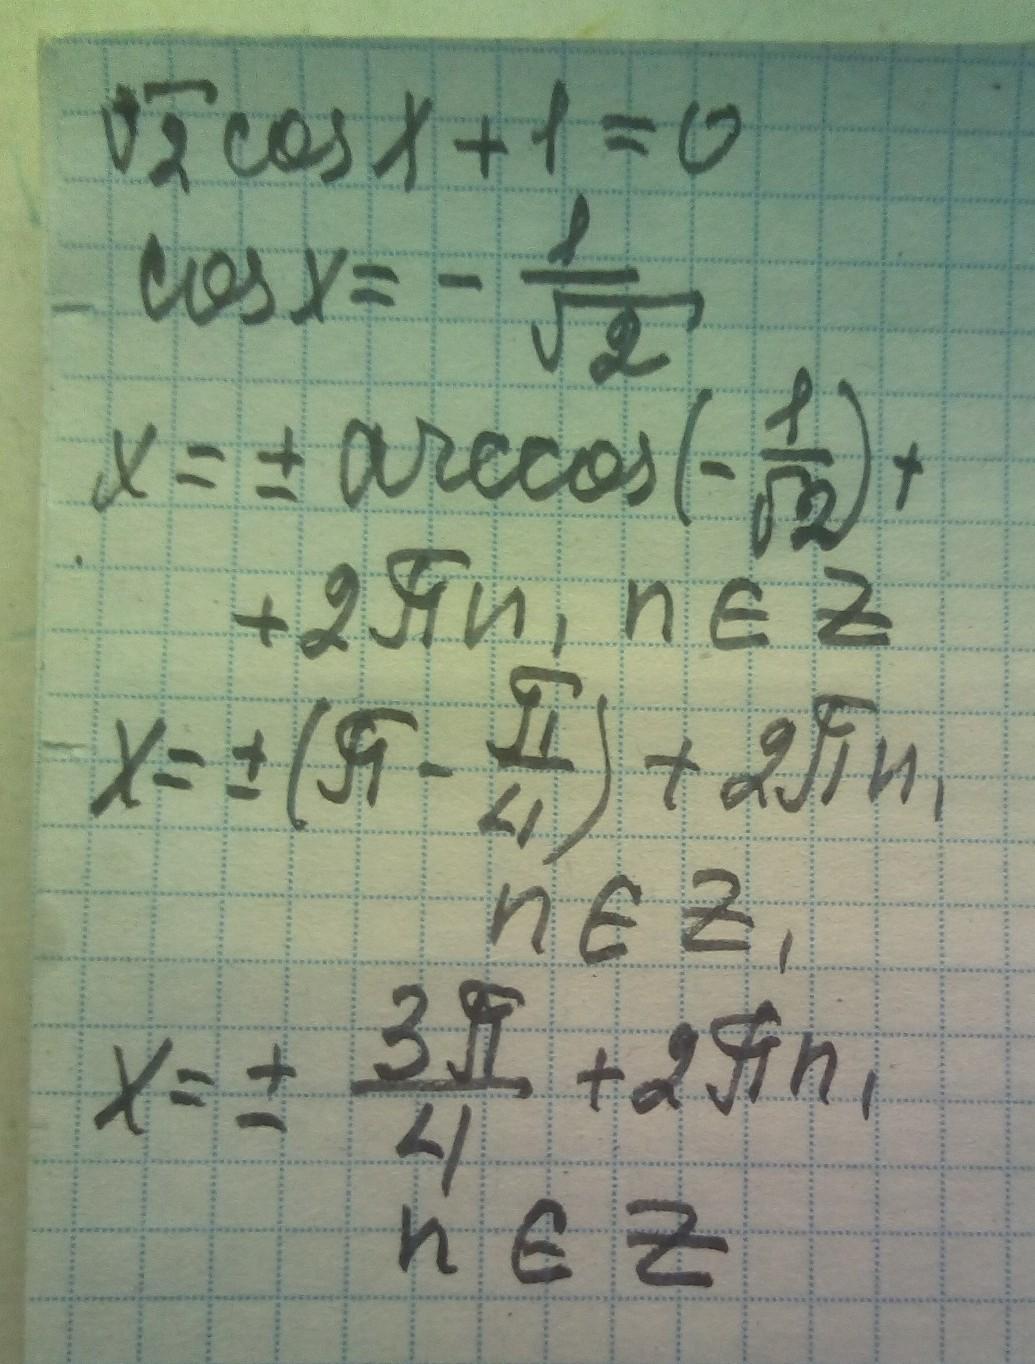 √2 cos x + 1 = 0
cos x = - 1/√2
x = ± arccos(- 1/√2) +
+ 2πn, n ∈ Z
x = ± (π - π/4) + 2πn,
n ∈ Z,
x = ± 3π/4 + 2πn,
n ∈ Z